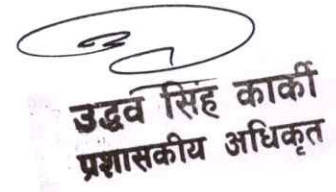 उद्धव सिंह कार्की
प्रशासकीय अधिकृत